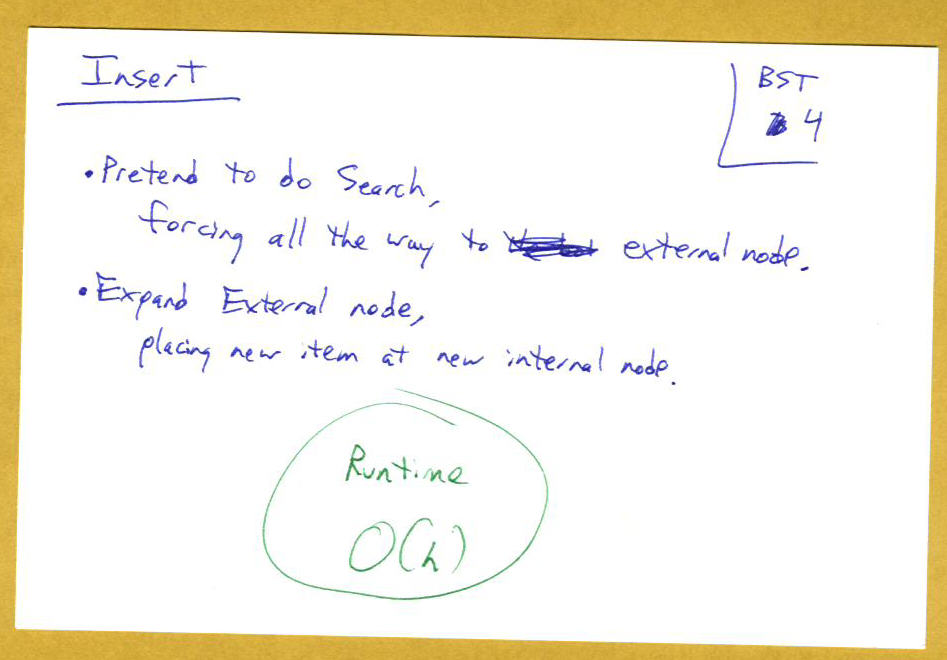 Insert
BST
4
• Pretend to do Search,
forcing all the way to external node.
• Expand External node,
placing new item at new internal node.
Runtime
O(h)